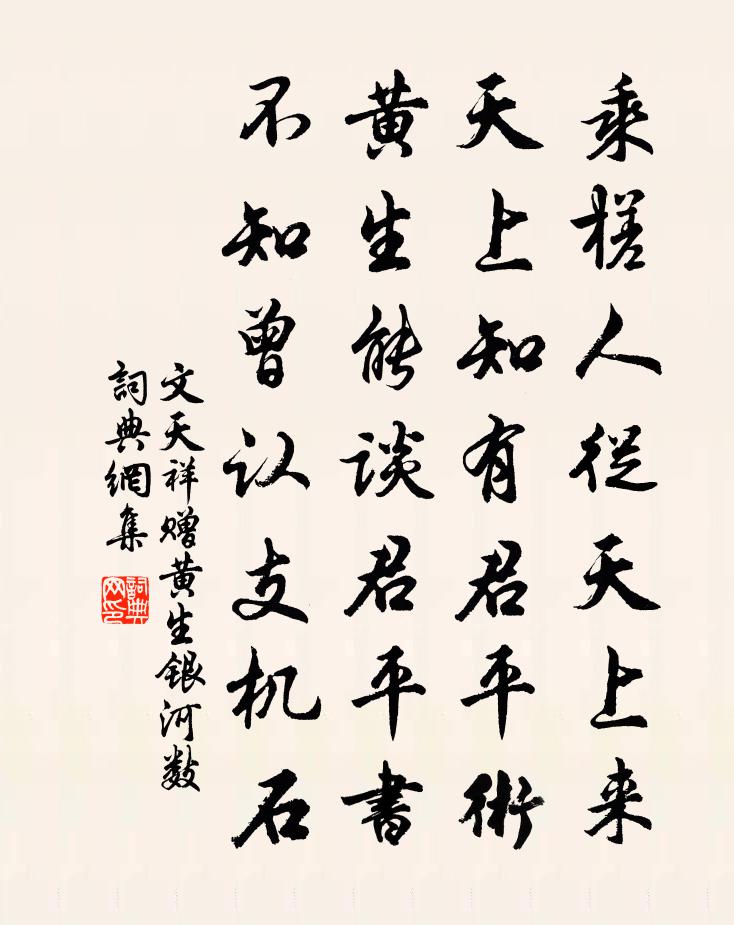 乘槎人從天上来
天上知有君平術
黄生能談君平書
不知曾认支机石
文天祥赠黄生銀河数
詞典網集
詞典网印